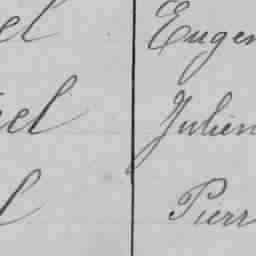 el Eugen
el Julien
l Pierr